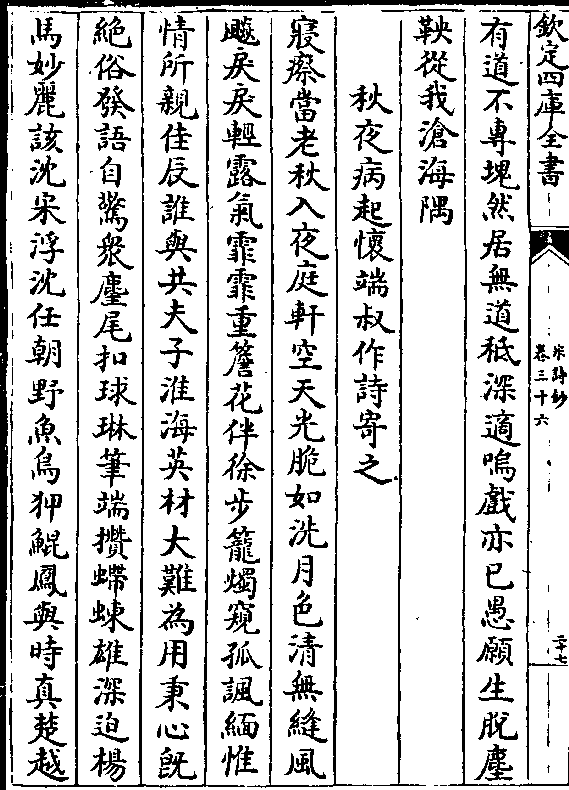 欽定四庫全書
宋詩鈔
卷三十六
二十七
有道不專塊然居無道秪深適嗚戲亦已愚願生脫塵
鞅從我滄海隅
秋夜病起懷端叔作詩寄之
寢瘵當老秋入夜庭軒空天光脆如洗月色清無縫風
飈戾戾輕露氣霏霏重簷花伴徐步籠燭窺孤諷緬惟
情所親佳辰誰與共夫子淮海英材大難為用秉心旣
絶俗發語自驚衆麈尾扣球琳筆端攢螮蝀雄深迫楊
馬妙麗該沈宋浮沈任朝野魚鳥狎鯤鳳與時真楚越